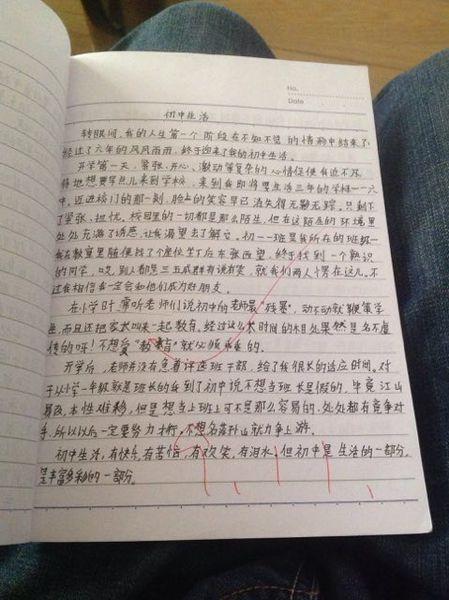 No.
Date
初中生活
转眼间,我的人生第一个阶段在不知不觉的情形中结束了,
经过了六年的风风雨雨,终于迎来了我的初中生活。
开学第一天,紧张、开心、激动等复杂的心情促使我迫不及
待地想要早点儿来到学校,来到我即将要生活三年的学校——六
中。迈进校门的那一刻,脸上的笑容早已消失得无影无踪。只剩下
了紧张、担忧。校园里的一切都是那么陌生,但在这陌生的环境里
处处充满了诱惑,让我渴望去了解它。初一一班是我所在的班级
我在教室里随便找了个座位坐下后东张西望,终于找到一个熟识
的同学,哎,别人都是三五成群有说有笑,就我们两人愣在这儿。不
过我相信我一定会和他们成为好朋友。
在小学时常听老师们说初中的老师最"残暴",动不动就鞭策学
生,而且还把家长叫来一起教育。经过这么长时间的相处果然是名不虚
传的呀!不想受"教育"就必须乖乖的。
开学后,老师并没有急着评选班干部,给了我很长的适应时间。对
于从小学一年级就是班长的我到了初中说不想当班长是假的,毕竟江山
易改,本性难移,但是想当上班上可不是那么容易的,处处都有竞争对
手,所以以后一定要努力才行,不想名落孙山就力争上游。
初中生活,有快乐,有苦恼,有欢笑,有泪水,但初中是生活的一部分,
是丰富多彩的一部分。